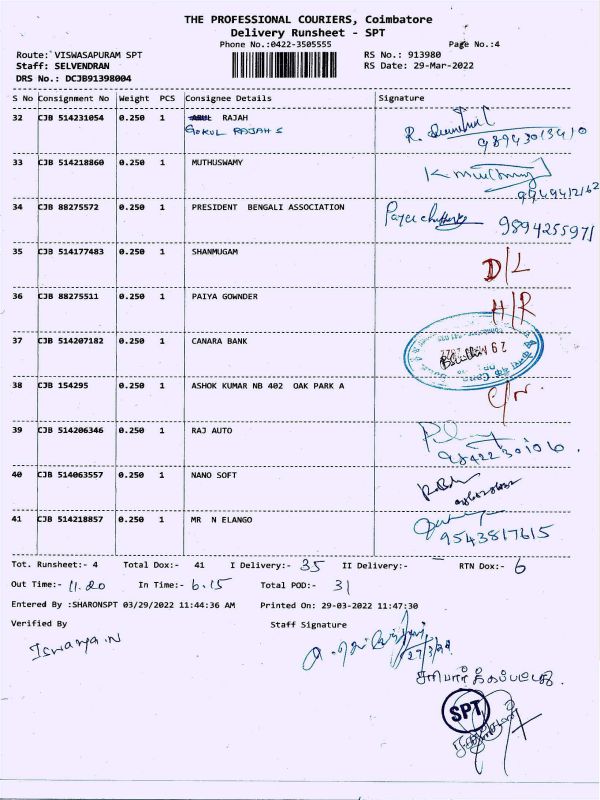 THE PROFESSIONAL COURIERS, Coimbatore
Delivery Runsheet - SPT
Phone No.:0422-3505555
Page No.:4
Route: VISWASAPURAM SPT
RS No.: 913980
Staff: SELVENDRAN
RS Date: 29-Mar-2022
DRS No.: DCJB91398004
S No Consignment No Weight PCS Consignee Details Signature
32 CJB 514231054 0.250 1 RAJAH
GOKUL RAJAH S
98943013410
33 CJB 514218860 0.250 1 MUTHUSWAMY
34 CJB 88275572 0.250 1 PRESIDENT BENGALI ASSOCIATION
9894255971
35 CJB 514177483 0.250 1 SHANMUGAM
D/L
36 CJB 88275511 0.250 1 PAIYA GOWNDER
H/R
37 CJB 514207182 0.250 1 CANARA BANK
38 CJB 154295 0.250 1 ASHOK KUMAR NB 402 OAK PARK A
39 CJB 514206346 0.250 1 RAJ AUTO
9842230106.
40 CJB 514063557 0.250 1 NANO SOFT
41 CJB 514218857 0.250 1 MR N ELANGO
9543817615
Tot. Runsheet:- 4 Total Dox:- 41 I Delivery:- 35 II Delivery:- RTN Dox:- 6
Out Time:- 11.20 In Time:- 6.15 Total POD:- 31
Entered By :SHARONSPT 03/29/2022 11:44:36 AM Printed On: 29-03-2022 11:47:30
Verified By Staff Signature
Iswarya.N
சரிபார்க்கப்பட்டது.
SPT